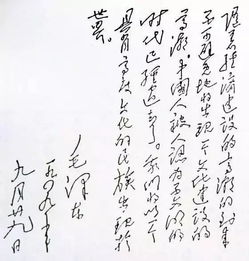 随着经济建设的高潮的到来
不可避免地将出现一个文化建设的
高潮。中国人被人认为不文明的
时代已经过去了。我们将以一个
具有高度文化的民族出现于
世界。
毛泽东
一九四九年
九月廿九日